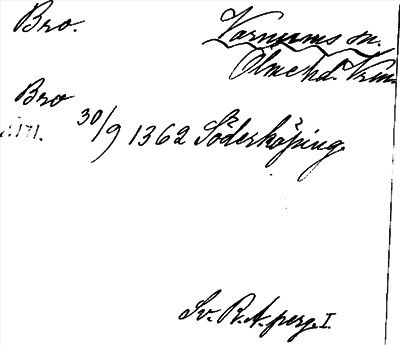 Bro. Varnums sn.
Ölmehd. Vrm.
Bro
30/9 1362 Söderköping.
Sv. R. A. perg. I.